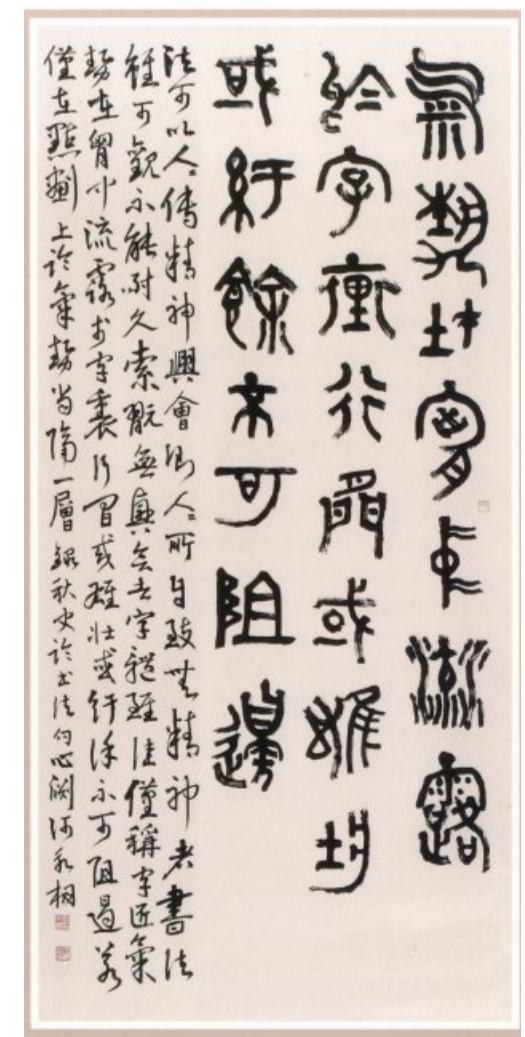 氣勢在胷中流露
於字裏行間或雄壯
或紆餘不可阻遏
法可以人人傳精神興會則人人所自致無精神者書法
雖可觀不能耐久索翫無興會者字體雖佳僅稱字匠氣
勢在胷中流露于字裏行間或雄壯或紆徐不可阻遏若
僅在點劃上論氣勢尚隔一層 錄秋史論書法句 心 河永桐